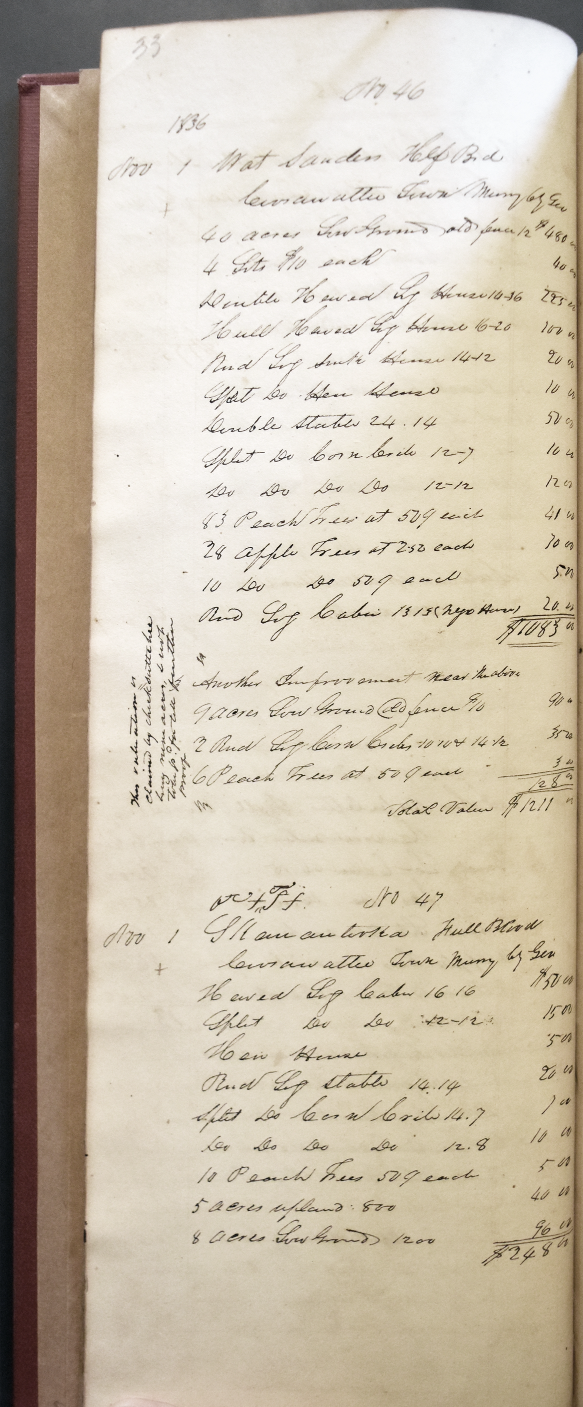 33
No. 46
1836
Nov 1 Wat Sanders Half Bred
Coosawattee Town Murry Cty Geo
40 acres Low Ground old fence 12 $480 00
4 Lots $10 each 40 00
Double Hewed Log House 16-36 225 00
Hull Hewed Log House 16-20 100 00
Rnd Log House 14-12 20 00
Split Do Hen House 10 00
Double Stable 24.14 50 00
Split Do Corn Crib 12-7 10 00
Do Do Do Do 12-12 12 00
83 Peach Trees at 50¢ each 41 00
28 Apple Trees at 250 each 70 00
10 Do Do 50¢ each 5.00
Rnd Log Cabin 13 13 20.00
$1083 00
Another Improvement near the above
9 acres Low Ground fence $10 90 00
2 Rnd Log Corn Cribs 10 10 & 14-12 35 00
6 Peach Trees at 50¢ each 3 00
128 00
Total Value $1211 00
This valuation is
claimed by
proof
No 47
Nov 1 Full Blood
Coosawattee Town Murry Cty Geo
Hewed Log Cabin 16 16 $50 00
Split Do Do 12-12 15 00
Hen House 5 00
Rnd Log Stable 14.14 20 00
Split Do Corn Crib 14.7 7 00
Do Do Do Do 12.8 10 00
10 Peach Trees 50¢ each 5 00
5 acres upland 800 40 00
8 acres Low Ground 1200 96 00
$248 00